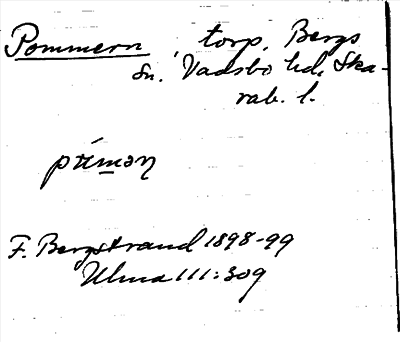 Pommern, torp, Bergs
sn. Vadsbo hd, Ska-
rab. l.
F. Bergstrand 1898-99
Ulma 111:309